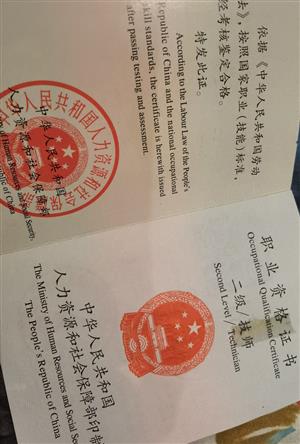 依据《中华人民共和国劳动
法》，按照国家职业(技能)标准，
经考核鉴定合格。
特发此证。
According to the Labour Law of the People's
Republic of China and the national occupational
skill standards, the certificate is herewith issued
after passing testing and assessment.
中华人民共和国
人力资源和社会保障部
of Human Resources and Social Security,
Republic of China
职业资格证书
Occupational Qualification Certificate
二级/技师
Second Level / Technician
中华人民共和国
人力资源和社会保障部印制
The Ministry of Human Resources and Social Secu
The People's Republic of China